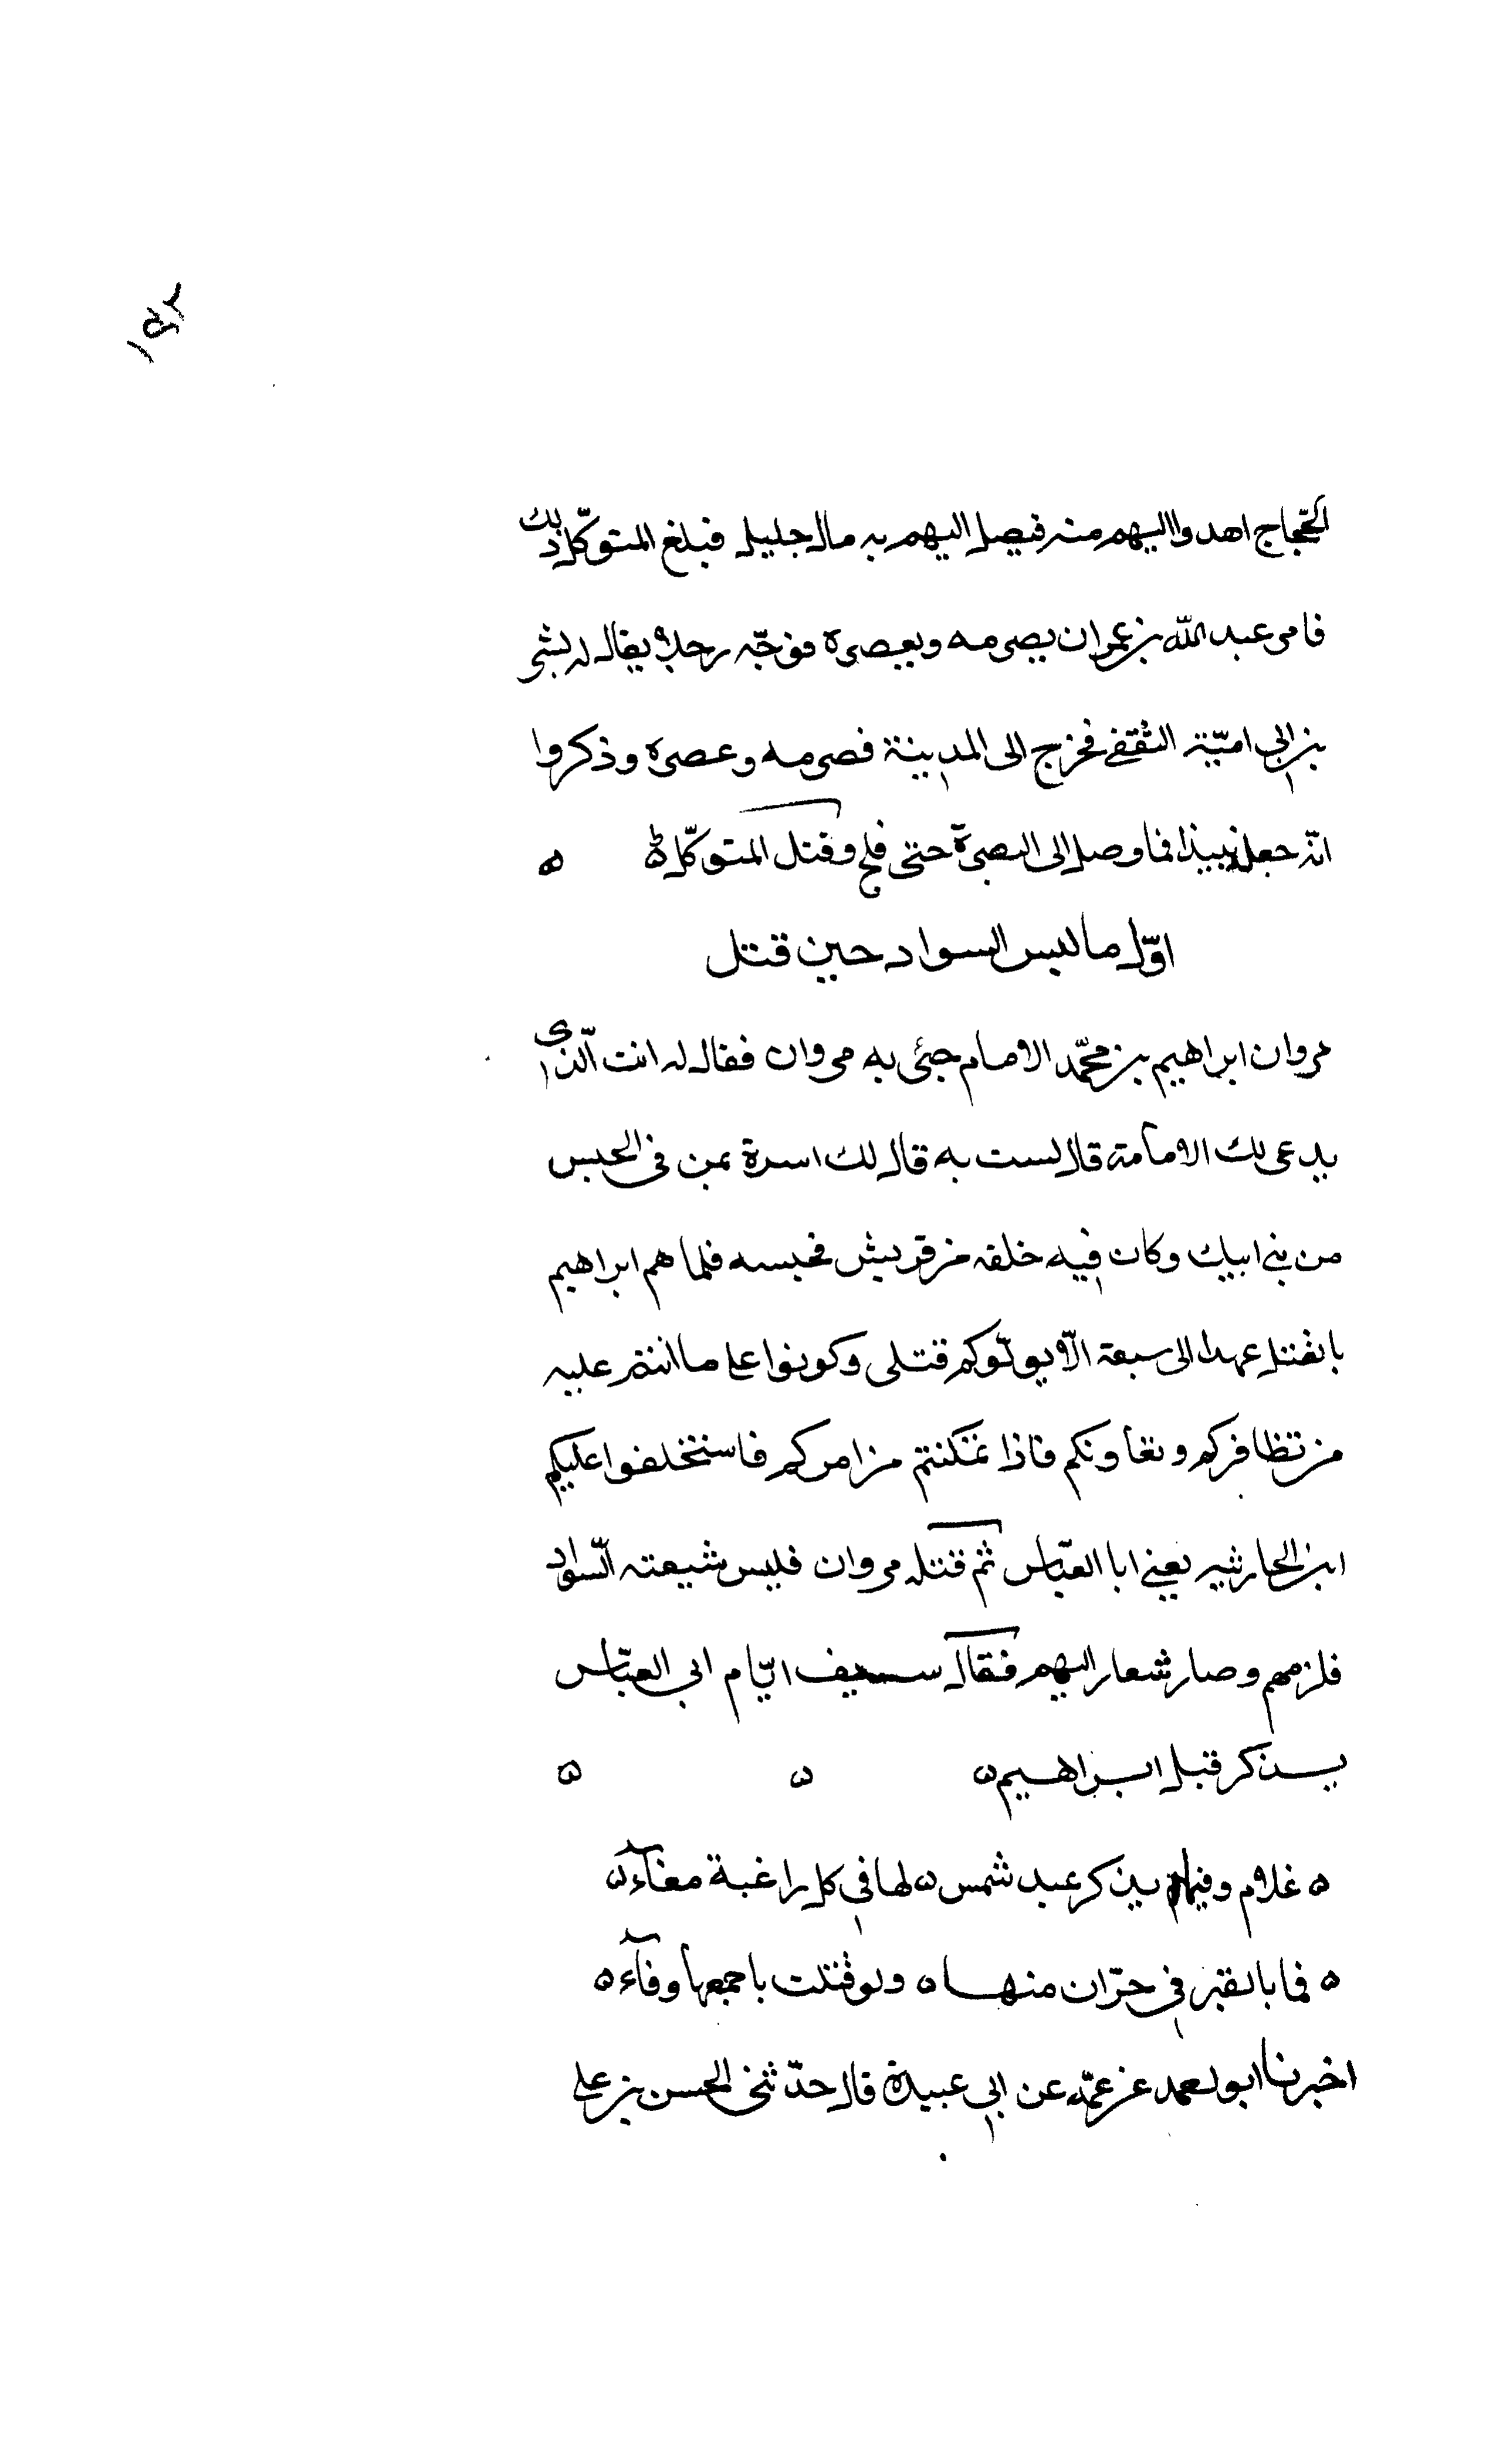 الحجّاج اهدوا اليهم منه فيصل اليهم به مال جليل فبلغ المتوكّل ذلك
فامر عبد الله بن عمران بصرمه وبعصره فوجّه رجلا يقال له بشر
بن ابي اميّة الثقفي فخرج الى المدينة فصرمه وعصره وذكروا
انّه جعله نبيذا فما وصل الى البصرة حتى فلج وقتل المتوكّل ه ه
اوّل ما لبس السواد حين قتل
مروان ابراهيم بن محمّد الامام جئ به مروان فقال له انت الّذى
يدعى لك الامامة قال لست به قال لك اسرة بمن فى الحبس
من بني ابيك وكان فيه خلقه من قريش فحبسه فلما هم ابراهيم
بالقتل عهد الى سبعة الّا يولّوكم قتلى وكونوا على ما انتم عليه
من تظافركم وتعاونكم فاذا تمكنتم من امركم فاستخلفوا عليكم
ابن الحارثيه يعني ابا العبّاس ثم قتله مروان فلبس شيعته السّواد
فلزمهم وصار شعار اليهم فقال سديف ايّام ابى العبّاس
يذكر قبل ابراهيم ه ه ه
ه غلام وفيما يذكر عبد شمس ه لها في كل راغبة معآء ه
ه فما بالقبر في حرّان منها ه ولو قتلت باجمعها وفآء ه
اخبرنا ابو احمد عن عمّه عن ابي عبيدة قال حدّثني الحسن بن علي